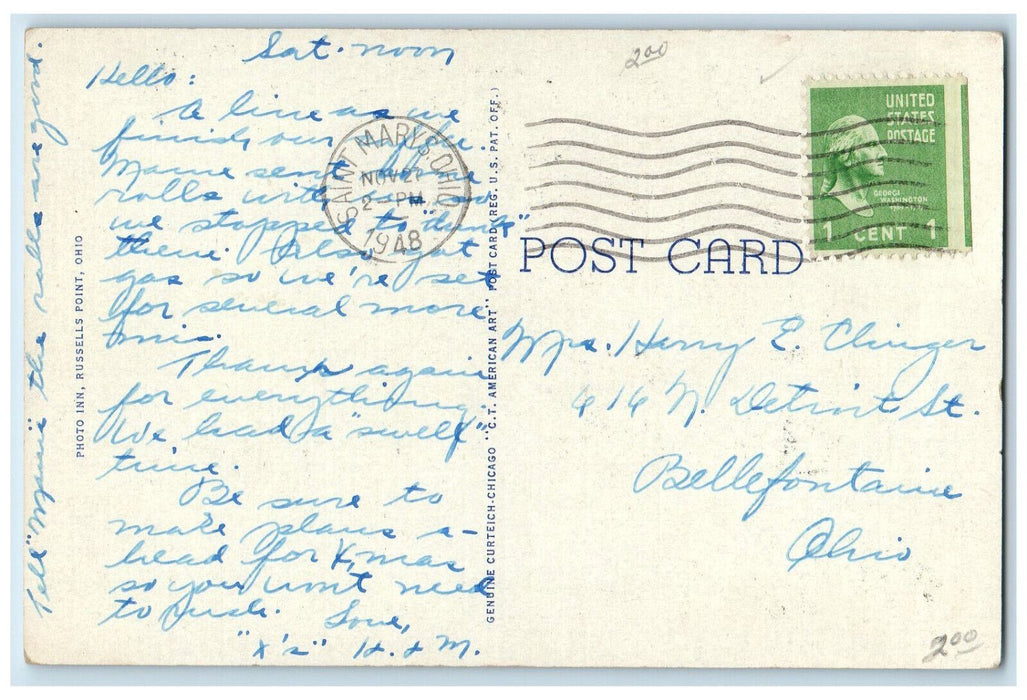 Sat. noon
Hello:
A line as we
finish our
Mame sent
rolls with
we stopped to "dunk"
them. Also got
gas so we're set
for several more
mi.
Thanks again
for everything.
We had a "swell"
time.
Be sure to
make plans a-
head for Xmas
so you wont need
to rush.
Love,
"X's" H. & M.
Tell "Mame" the rolls are good.
PHOTO INN, RUSSELLS POINT, OHIO
GENUINE CURTEICH-CHICAGO "C.T. AMERICAN ART" POST CARD (REG. U.S. PAT. OFF.)
SAINT MARYS, OHIO
NOV 27
2 PM
1948
2.00
UNITED
STATES
POSTAGE
GEORGE
WASHINGTON
1 CENT 1
POST CARD
Mrs. Harry E. Clinger
616 N. Detroit St.
Bellefontaine
Ohio
2.00